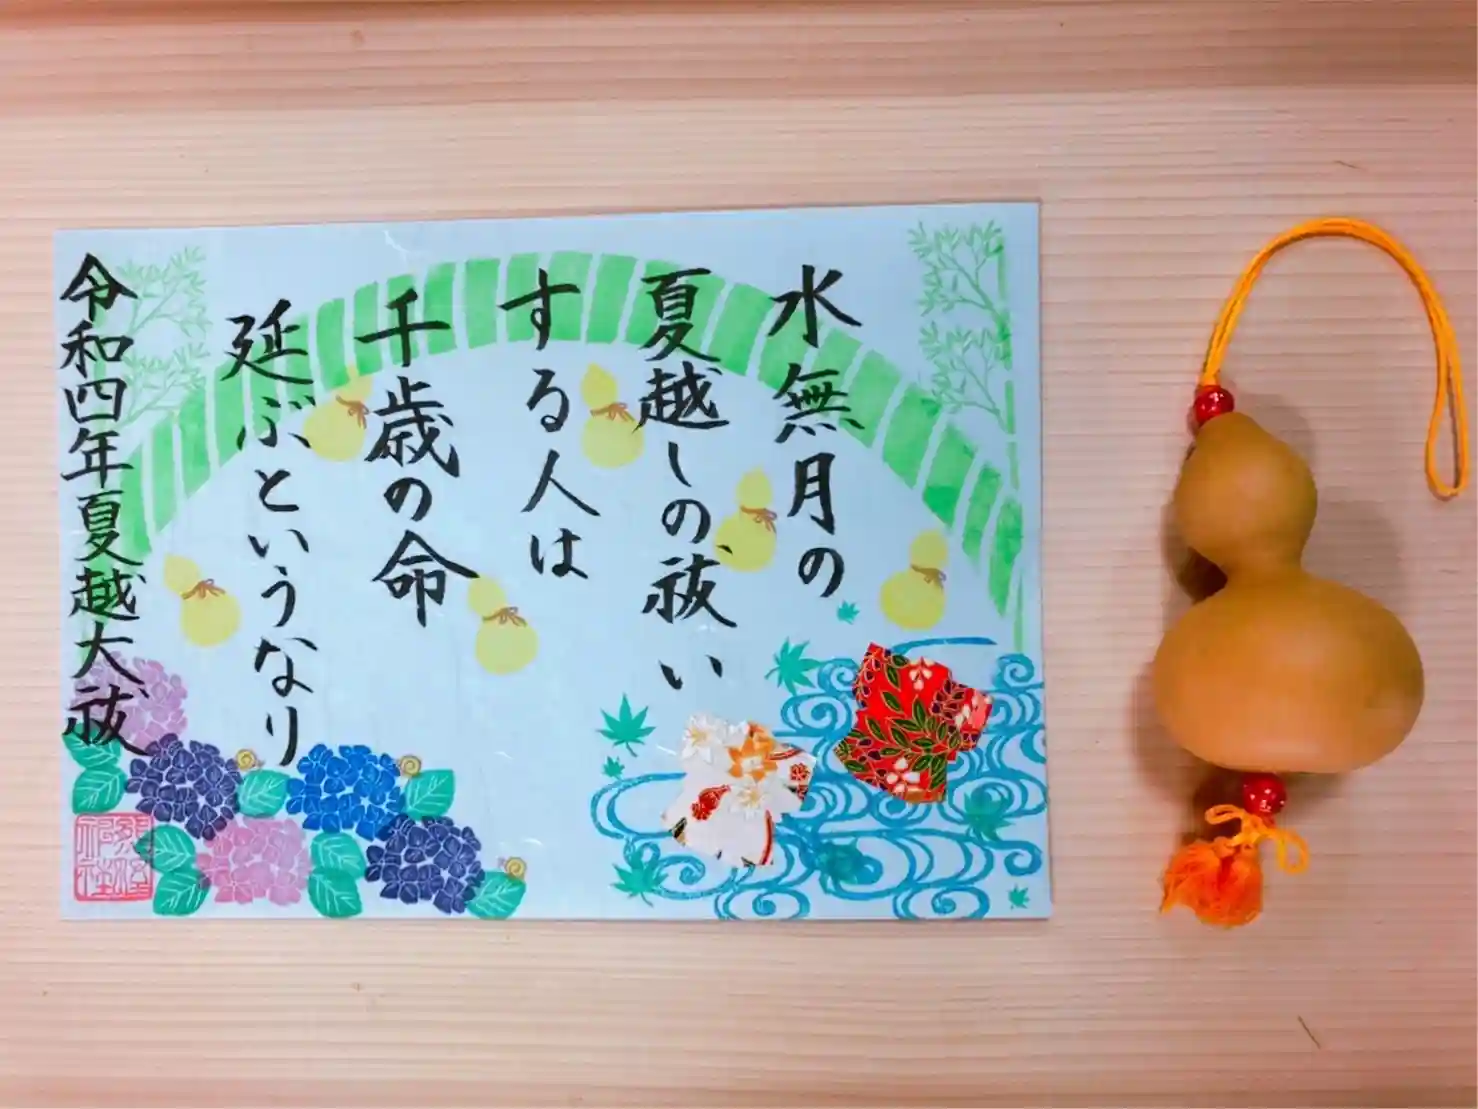 水無月の
夏越しの祓い
する人は
千歳の命
延ぶというなり
令和四年夏越大祓